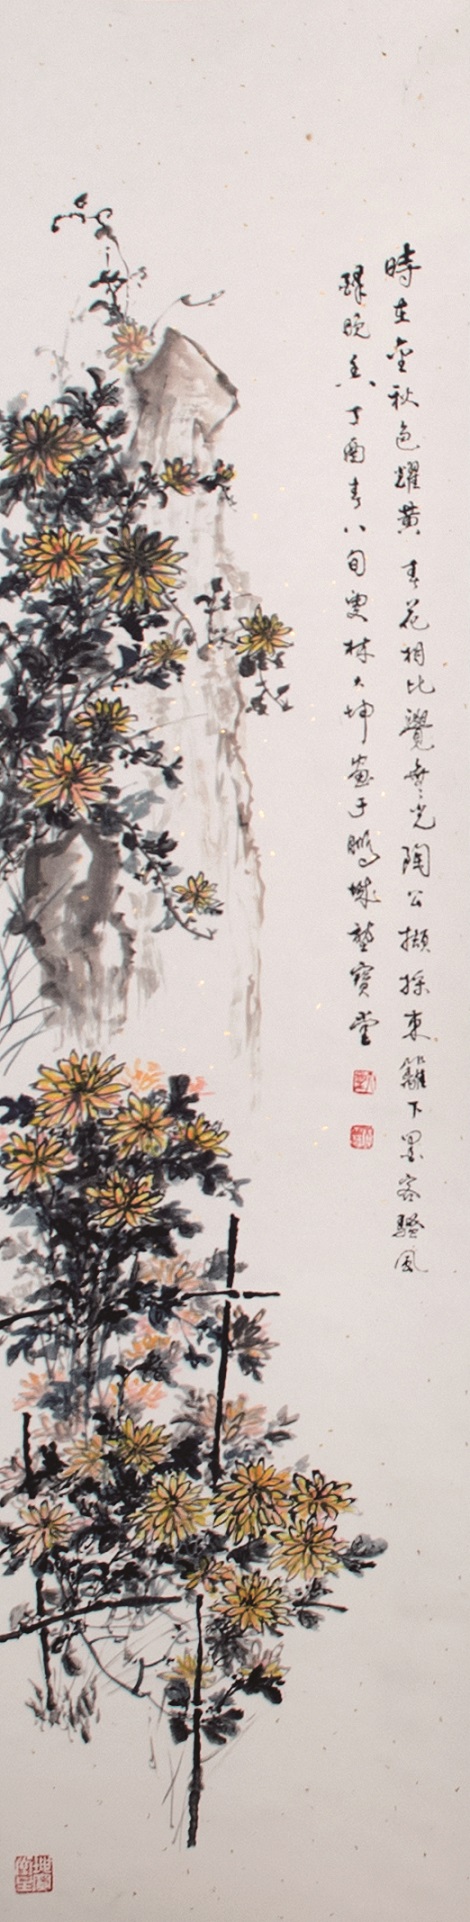 時在金秋色耀黃春花相比覺無光陶公擷採東籬下墨客騷風
醉晚香丁酉春八旬叟林大坤畫于鵬城藝寶堂